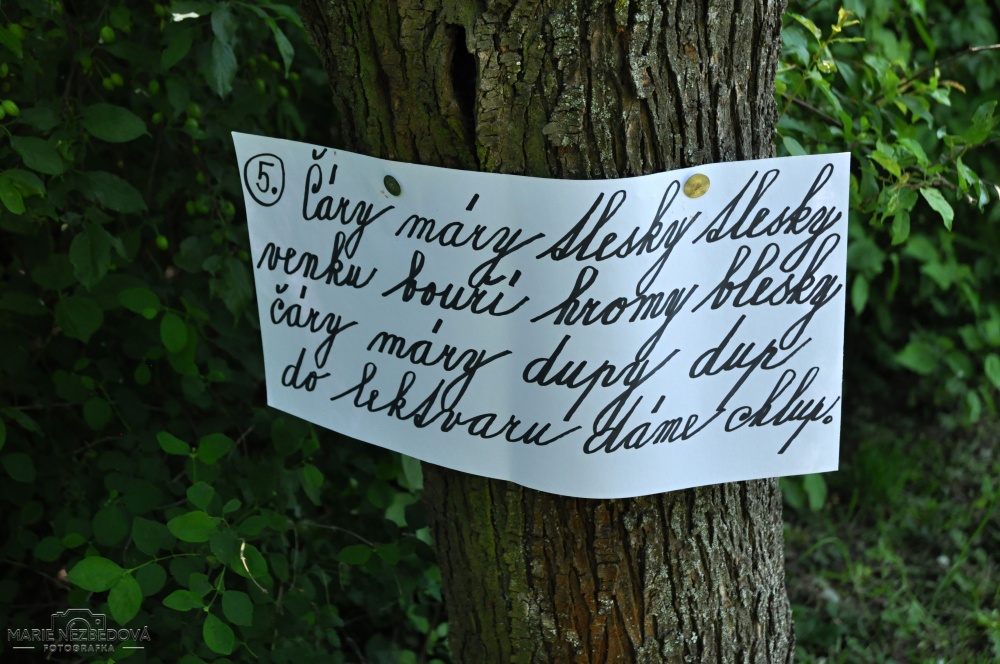 5. Čáry máry tlesky tlesky
venku bouří hromy blesky
čáry máry dupy dup
do lektvaru dáme chlup.
MARIE NEZBEDOVÁ
FOTOGRAFKA